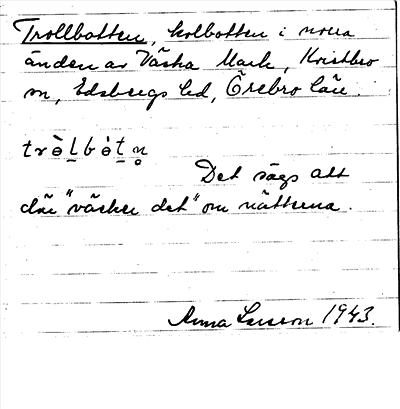 Trollbotten, kolbotten i norra
änden av Västra Mark, Kvistbro
sn, Edsbergs hd, Örebro län.
trò̱l̠bòt̠n̥
Det sägs att
där "väsker det" om nätterna.
Anna Larsson 1943.